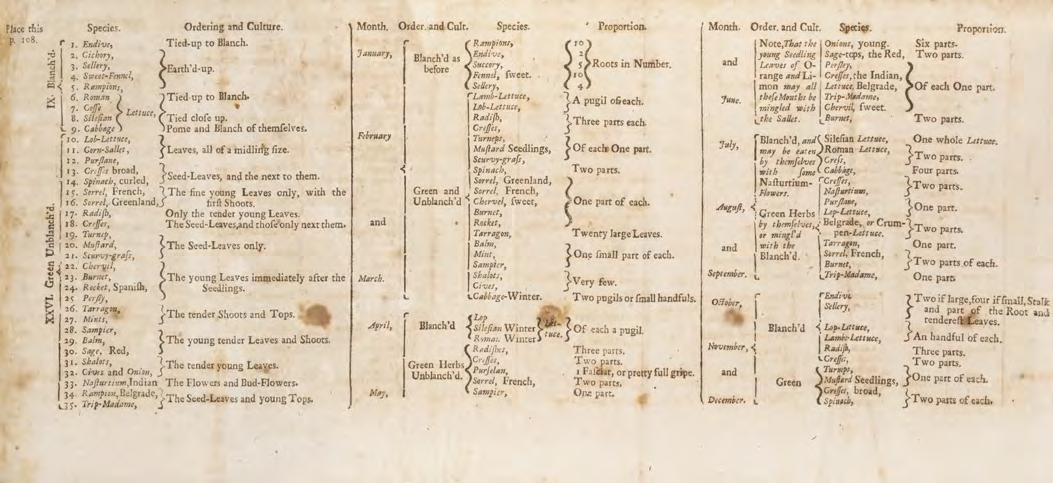 Place this
p. 108.
Species.
Ordering and Culture.
IX. Blanch'd.
1. Endive,
2. Cichory,
3. Sellery,
4. Sweet-Fennel,
5. Rampions,
6. Roman
7. Cosse
8. Silesian
9. Cabbage
Lettuce,
Tied-up to Blanch.
Earth'd-up.
Tied-up to Blanch.
Tied close up.
Pome and Blanch of themselves.
XXVI. Green Unblanch'd.
10. Lob-Lettuce,
11. Corn-Sallet,
12. Purslane,
13. Cresses broad,
14. Spinach, curled,
15. Sorrel, French,
16. Sorrel, Greenland,
17. Radish,
18. Cresses,
19. Turnep,
20. Mustard,
21. Scurvy-grass,
22. Chervil,
23. Burnet,
24. Rocket, Spanish,
25. Persly,
26. Tarragon,
27. Mints,
28. Sampier,
29. Balm,
30. Sage, Red,
31. Shalots,
32. Cives and Onion,
33. Nasturtium, Indian
34. Rampion, Belgrade,
35. Trip-Madame,
Leaves, all of a midling size.
Seed-Leaves, and the next to them.
The fine young Leaves only, with the
first Shoots.
Only the tender young Leaves.
The Seed-Leaves, and those only next them.
The Seed-Leaves only.
The young Leaves immediately after the
Seedlings.
The tender Shoots and Tops.
The young tender Leaves and Shoots.
The tender young Leaves.
The Flowers and Bud-Flowers.
The Seed-Leaves and young Tops.
Month.
Order. and Cult.
Species.
Proportion.
January,
February
and
March.
Blanch'd as
before
Rampions, 10
Endive, 2
Succory, 5
Fennel, sweet. 10
Sellery, 4
Roots in Number.
Lamb-Lettuce,
Lob-Lettuce,
A pugil of each.
Radish,
Cresses,
Three parts each.
Turneps,
Mustard Seedlings,
Scurvy-grass,
Of each One part.
Spinach,
Two parts.
Green and
Unblanch'd
Sorrel, Greenland,
Sorrel, French,
Chervel, sweet,
Burnet,
Rocket,
One part of each.
Tarragon,
Twenty large Leaves.
Balm,
Mint,
Sampier,
One small part of each.
Shalots,
Cives,
Very few.
Cabbage-Winter.
Two pugils or small handfuls.
April,
May,
Blanch'd
Lop
Silesian Winter
Roman Winter
Lettuce.
Of each a pugil.
Green Herbs
Unblanch'd.
Radishes,
Three parts.
Cresses,
Two parts.
Purselan,
1 Fasciat, or pretty full gripe.
Sorrel, French,
Two parts.
Sampier,
One part.
Month.
Order. and Cult.
Species.
Proportion.
and
June.
Note, That the
young Seedling
Leaves of O-
range and Li-
mon may all
these Months be
mingled with
the Sallet.
Onions, young.
Six parts.
Sage-tops, the Red,
Two parts.
Persley,
Cresses, the Indian,
Lettuce, Belgrade,
Trip-Madame,
Chervil, sweet.
Of each One part.
Burnet,
Two parts.
July,
August,
and
September.
Blanch'd, and
may be eaten
by themselves
with some
Nasturtium-
Flowers.
Silesian Lettuce,
One whole Lettuce.
Roman Lettuce,
Cress,
Two parts.
Cabbage,
Four parts.
Cresses,
Nasturtium,
Two parts.
Green Herbs
by themselves,
or mingl'd
with the
Blanch'd.
Purslane,
Lop-Lettuce,
One part.
Belgrade, or Crum-
pen-Lettuce.
Two parts.
Tarragon,
One part.
Sorrel, French,
Burnet,
Two parts of each.
Trip-Madame,
One part.
October,
November,
and
December.
Blanch'd
Endive
Sellery,
Two if large, four if small, Stalk
and part of the Root and
tenderest Leaves.
Lop-Lettuce,
Lambs-Lettuce,
An handful of each.
Radish,
Three parts.
Cresses,
Two parts.
Green
Turneps,
Mustard Seedlings,
One part of each.
Cresses, broad,
Spinach,
Two parts of each.